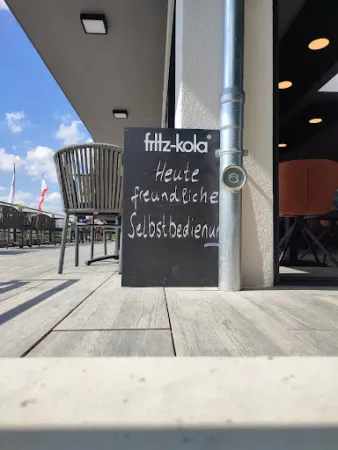 fritz-kola
Heute
freundliche
Selbstbedienun